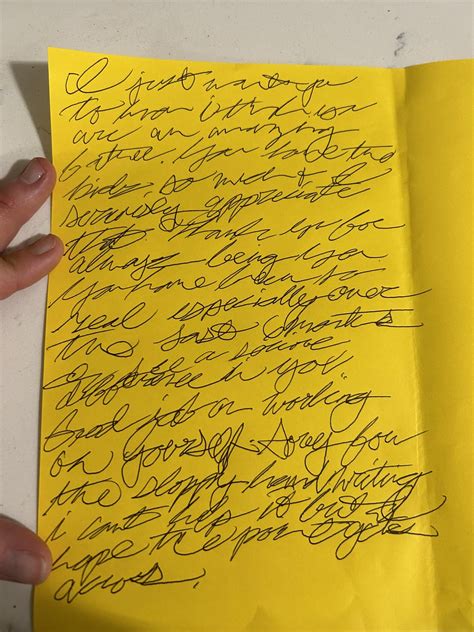 I just want you
to know i think you
are an amazing
father. You love the
kids so much & I
seriously appreciate
that. Thank you for
always being you.
You have been so
real especially over
the last months
I see a
difference in you
Good job on working
on yourself. Sorry for
the sloppy handwriting
i cant help it but I
hope the point gets
across.